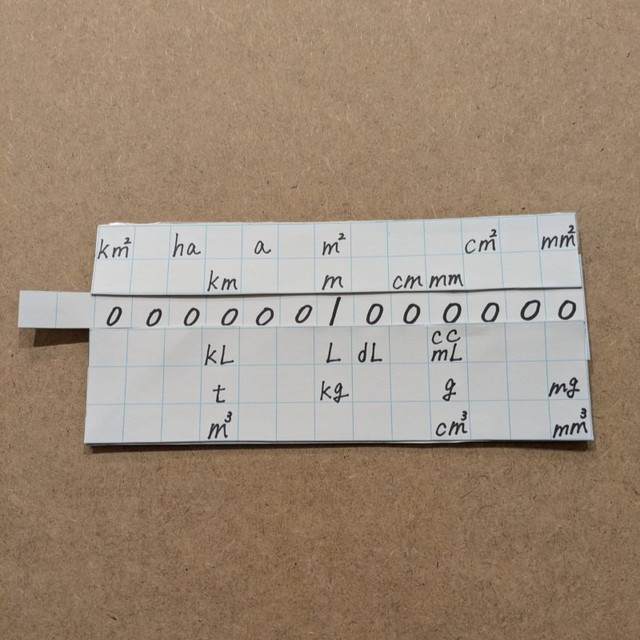 km² ha a m² cm² mm²
km m cm mm
0 0 0 0 0 0 1 0 0 0 0 0 0
cc
kL L dL mL
t kg g mg
m³ cm³ mm³